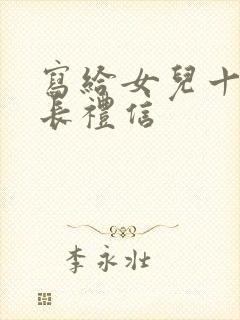 寫給女兒十
長禮信
李永壯